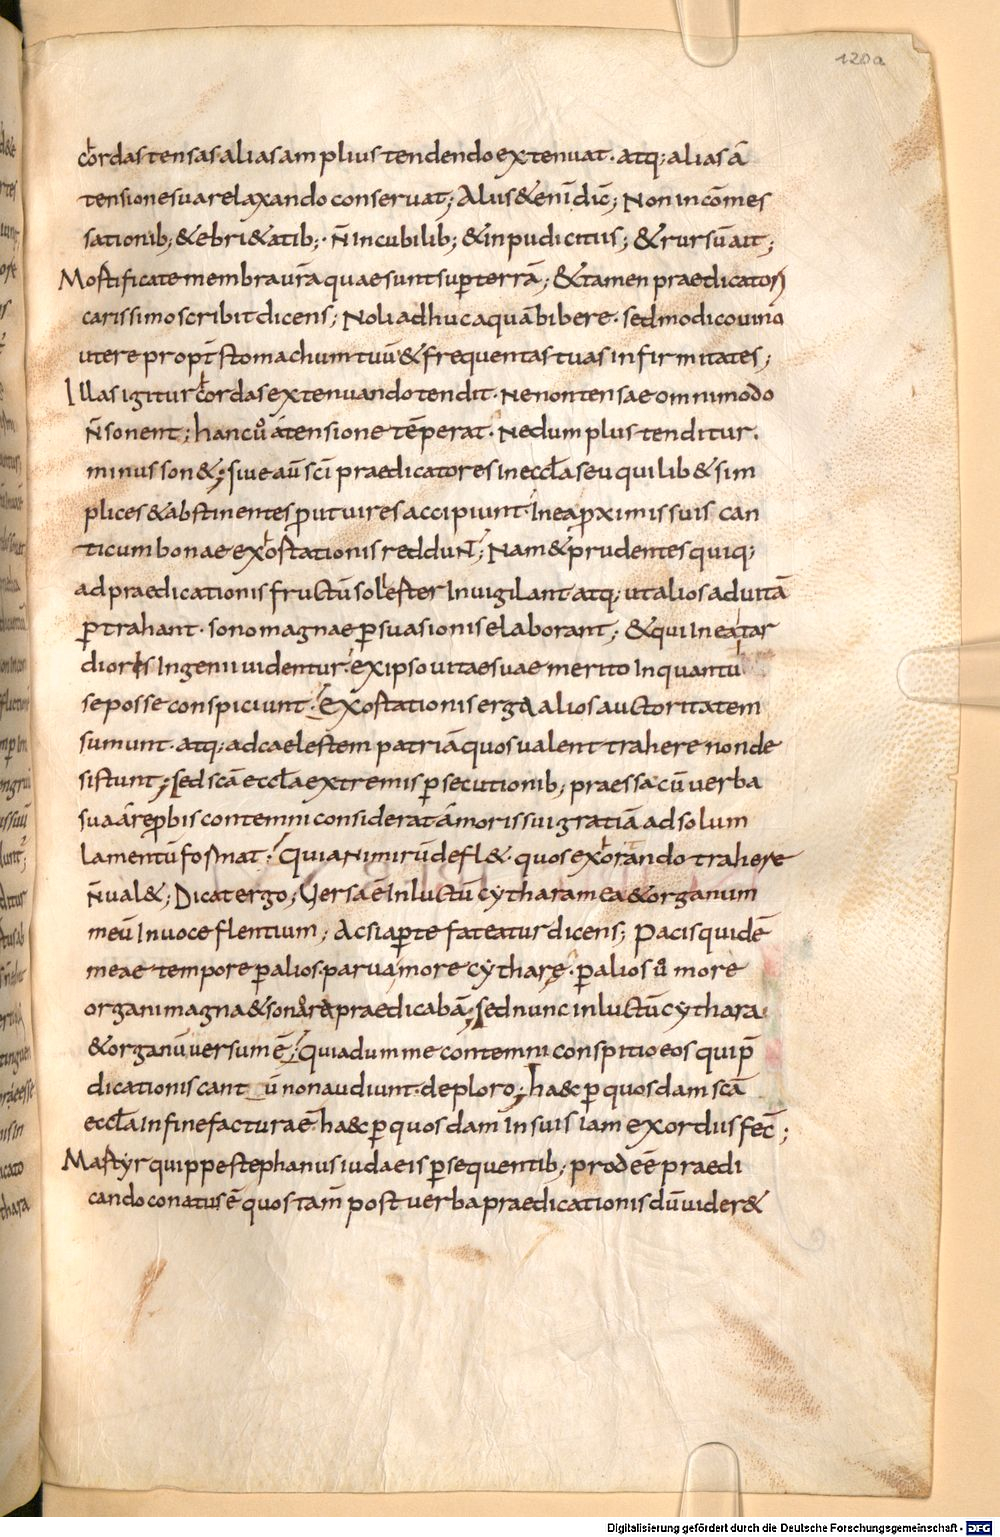 120a
cordas tensas. alias amplius tendendo extenuat. atq; alias á
tensione sua relaxando conseruat; Aliis & enī dic̄; Non in cōmes
sationib; & ebri&atib; n̄ in cubilib; & inpudicitiis; & rursū ait;
Mortificate membra ur̄a quae sunt sup terrā; & tamen praedicatori
carissimo scribit dicens; Noli adhuc aquā bibere. sed modico uino
utere propt̄ stomachum tuū & frequentas tuas infirmitates;
Illas igitur cordas extenuando tendit. Ne non tensae omnimodo
n̄ sonent; has cū á tensione tēperat. Ne dum plus tenditur.
minus son&; siue aū sc̄i praedicatores in eccl̄a seu quilib& sim
plices & abstinentes ꝓut uires accipiunt. In ea ꝓximis suis can
ticum bonae exhortationis reddunt; Nam & prudentes quiq;
ad praedicationis fructū sollerter Inuigilant atq; ut alios ad uitā
ptrahant. sono magnae psuasionis elaborant; & qui In ea tar
diores Ingenii uidentur. ex ipso uitae suae merito In quantū
se posse conspiciunt. Exortationis erga alios auctoritatem
sumunt. atq; ad caelestem patriā quos ualent trahere non de
sistunt; Sed sc̄a eccl̄a extremis psecutionib; praessa cū uerba
sua á repbis contemni considerat ámoris sui gratiā ad solum
lamentū format. Quia nimirū defl& quos exhorando trahere
n̄ ual&; Dicat ergo; Uersa ē In luctū cythara mea & organum
meū In uoce flentium; Ac si apte fateatur dicens; Pacis quidē
meae tempore p alios. parua more cytharę. p alios ū more
organi magna & sonora praedicabā; sed nunc in luctū cythara
& organū uersum ē. Quia dum me contemni conspitio eos qui p̄
dicationis cant ū non audiunt. deploro; ha&c p quosdam sc̄a
eccl̄a In fine factura ē ha&c p quosdam In suis iam exordiis fec̄;
Martyr quippe stephanus iudaeis psequentib; prodeē praedi
cando conatus ē quos tam̄ post uerba praedicationis dū uider&
Digitalisierung gefördert durch die Deutsche Forschungsgemeinschaft - DFG